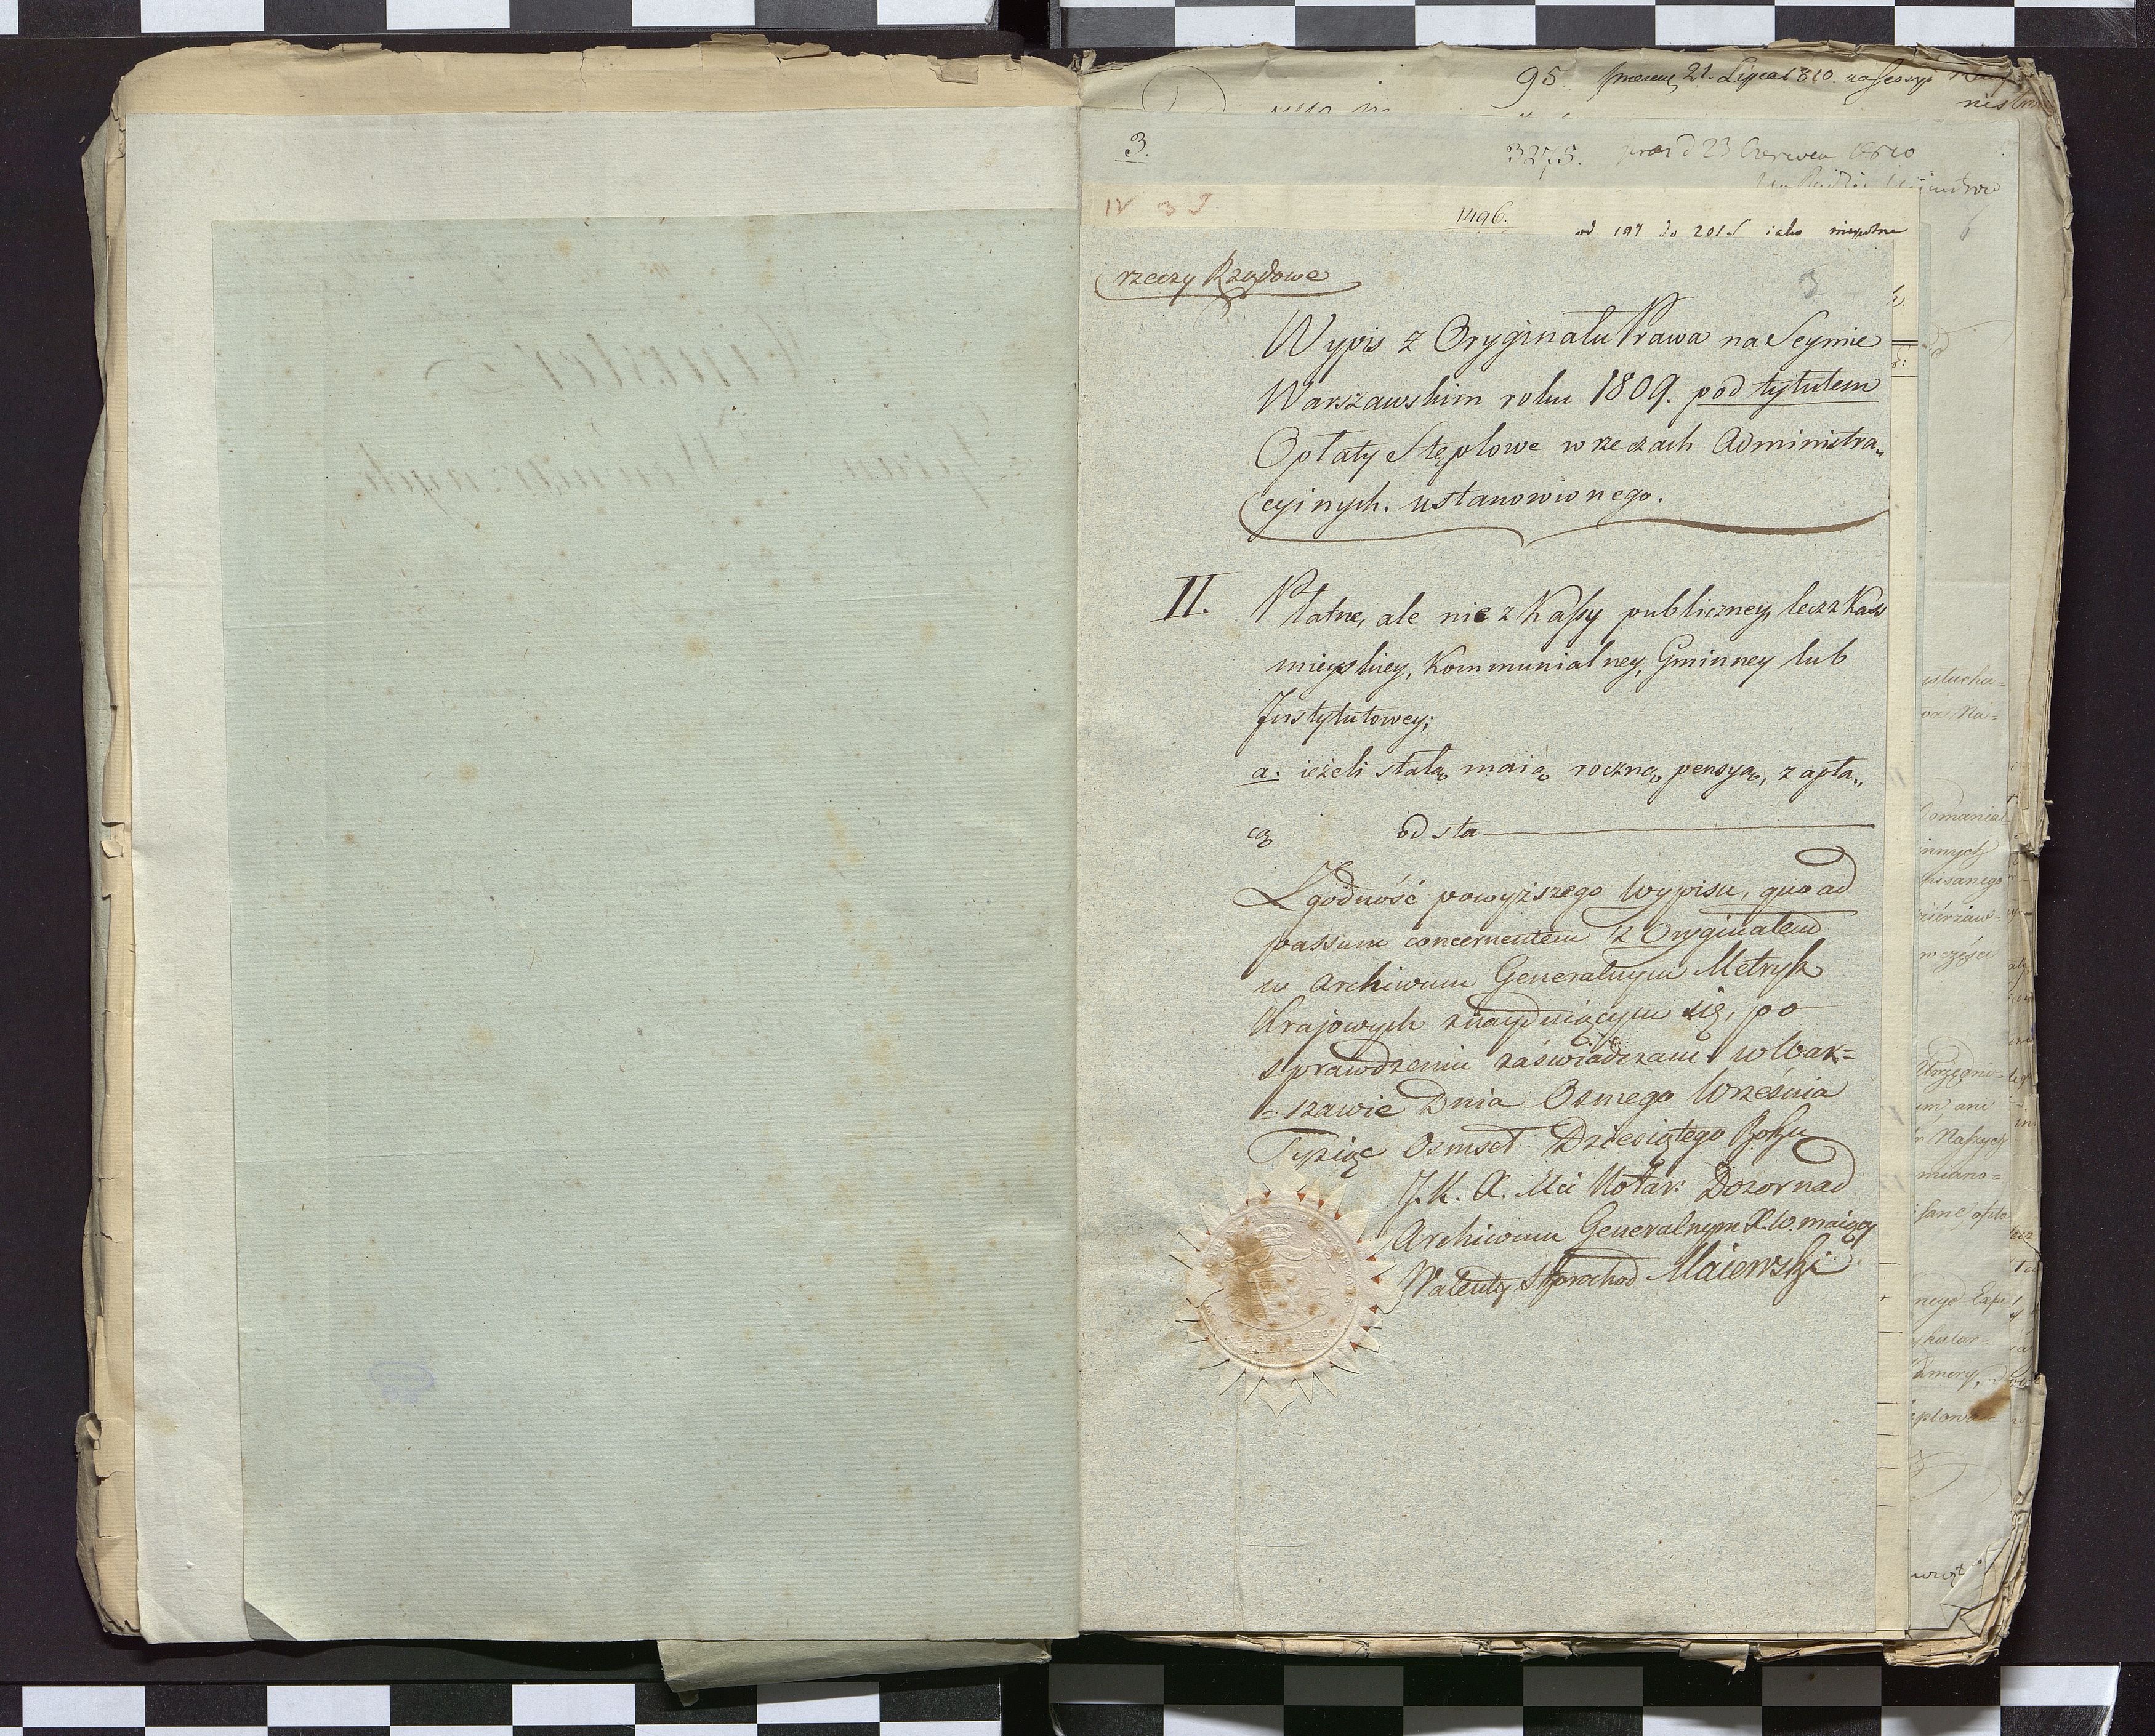 95 21. Lipca 1810.
3.
3275. 23 Czerwca 1810
IV 3 J
1496. od 197 do 201 S iako
rzeczy Rządowe
3
Wypis z Oryginału Prawa na Seymie
Warszawskim roku 1809. pod tytułem
Opłaty Stęplowe w rzeczach Administra„
cyinych. ustanowionego.
II. Płatne, ale nie z Kassy publiczney, lecz z Kassy
mieyskiey, Kommunialney, Gminney lub
Instytutowey;
a. ieżeli stałą maią roczną pensyą, zapła„
cą od sta
Zgodność powyższego Wypisu, quo ad
passum concernentem z Oryginałem
w Archiwum Generalnym Metryk
Krajowych znayduiącym się, po
sprawdzeniu zaświadczam. w War=
=szawie Dnia Osmego Września
Tysiąc Osmset Dziesiątego Roku
J. K. X. Mci Notar: Dozor nad
Archiwum Generalnym X. W. maiący
Walenty Skorochod Maiewski